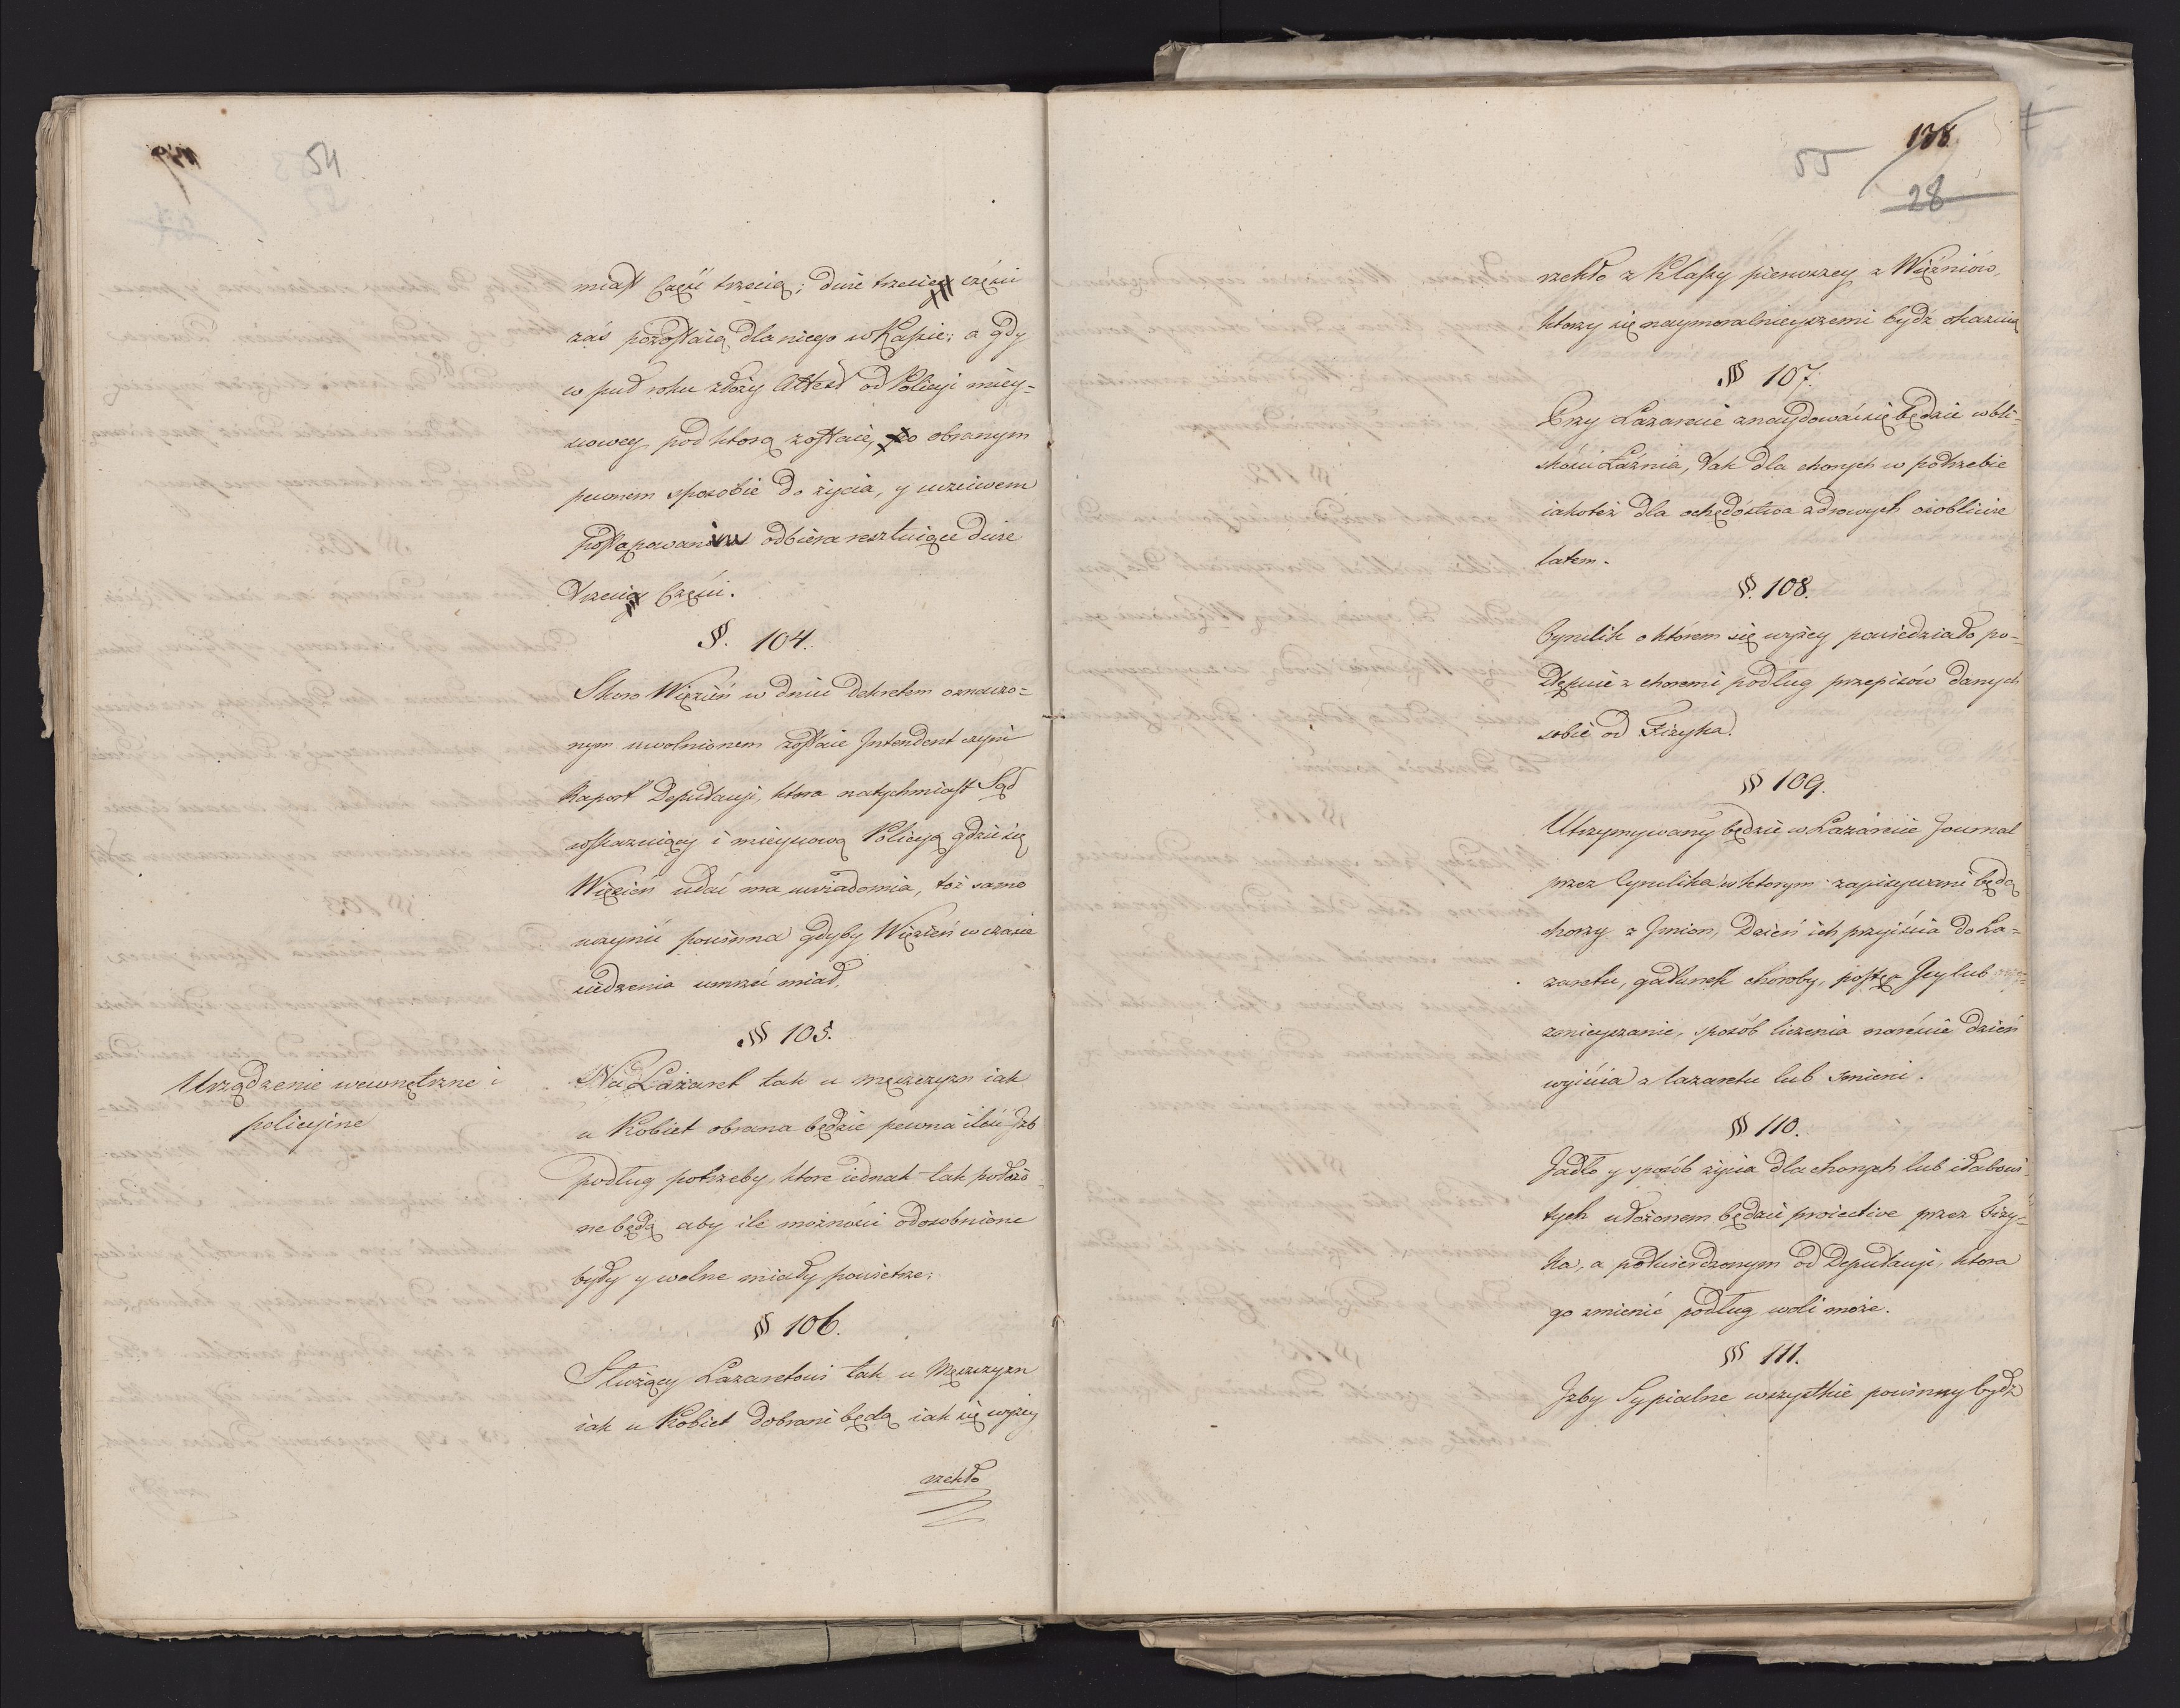 54
miast Część trzecią; dwie trzecie części
zaś pozostaią dla niego w Kassie; a gdy
w puł roku złoży Attest od Policyi miey=
scowey pod ktorą zostaie, o obranym
pewnem sposobie do życia, y uczciwem
postępowaniu odbiera resztuiące dwie
trzecie Części.
§. 104.
Skoro Więzień w dniu Dekretem oznaczo=
nym uwolnionem zostaie Intendent czyni
Raport Deputacyi, ktora natychmiast Sąd
wskazuiący i mieyscową Policyą gdzie się
Więzień udać ma uwiadomia, toż samo
uczynić powinna gdyby Więzień w czasie
siedzenia umrzeć miał.
§ 105.
Urządzenie wewnętrzne i
policyjne
Na Lazaret tak u męzczyzn iak
u Kobiet obrana będzie pewna ilość Izb
podług potrzeby, ktore iednak tak położo-
ne będą aby ile możności odosobnione
były y wolne miały powietrze;
§ 106.
Służący Lazaretowi tak u Męzczyzn
iak u Kobiet dobrani będą iak się wyżey
rzekło
138
55
28
rzekło z Klassy pierwszey z Więźniów,
ktorzy się naymoralnieyszemi bydź okazuią
§ 107.
Przy Lazarecie znaydować się będzie w bli-
skości Łaźnia, tak dla chorych w potrzebie
iakoteż dla ochędóstwa zdrowych osobliwie
latem.
§. 108.
Cyrulik o którem się wyżey powiedziało po-
stępuie z choremi podług przepisów danych
sobie od Fizyka.
§ 109.
Utrzymywany będzie w Lazarecie Journal
przez Cyrulika w ktorym zapisywani będą
chorzy z Imion, Dzień ich przyiścia do La=
zaretu, gatunek choroby, postęp Jey lub
zmnieyszanie, sposób liczenia nareście dzień
wyiścia z lazaretu lub śmierci.
§ 110.
Jadło y sposób życia dla chorych lub słabowi-
tych ułożonem będzie proiective przez Fizy=
ka, a potwierdzonym od Deputacyi, ktora
go zmienić podług woli może.
§ 111.
Izby Sypialne wszystkie powinny bydź